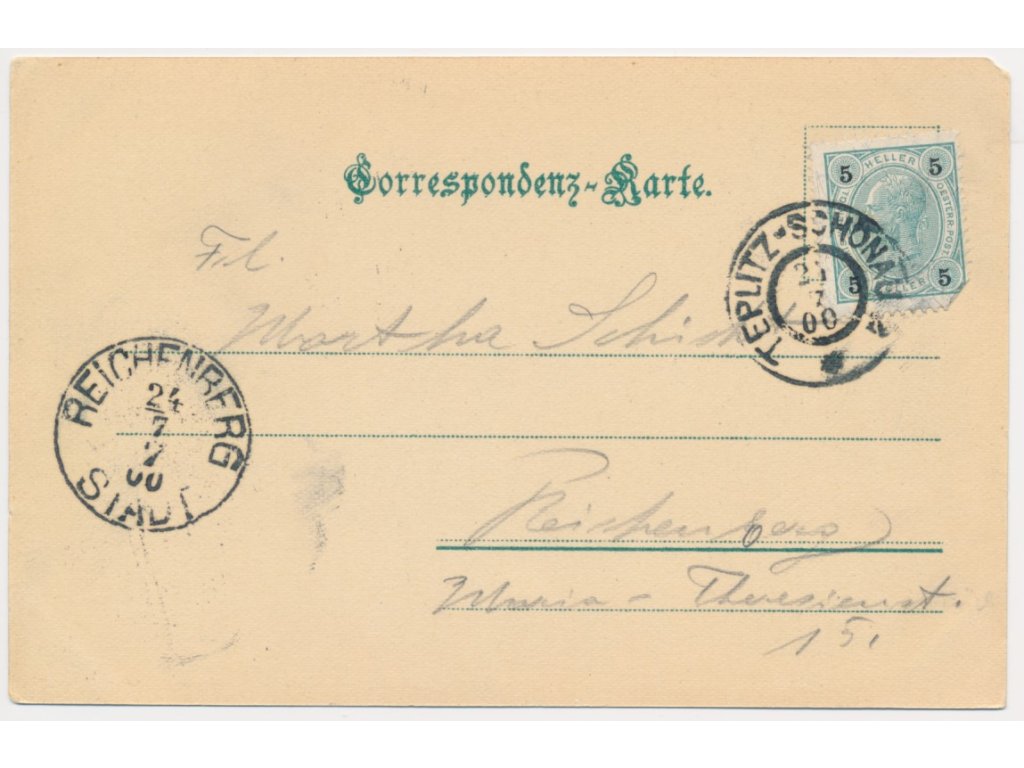 Correspondenz-Karte.
5 HELLER 5
OESTERR. POST
5 5
TEPLITZ-SCHÖNAU 2
00
Frl.
Martha
REICHENBERG
24
7
7
00
STADT
Reichenberg
Maria-Theresienst.
15.